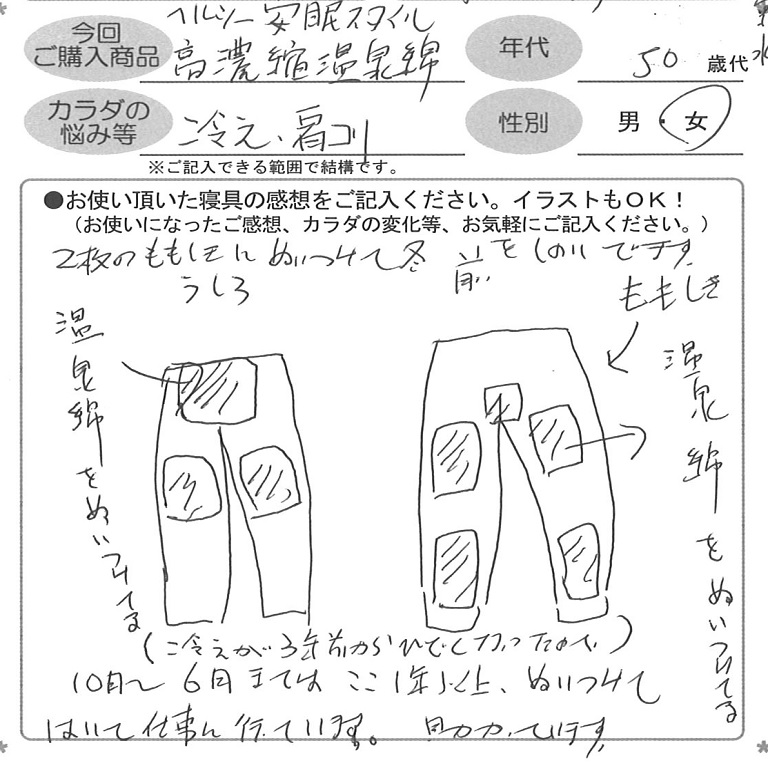 今回
ご購入商品
ヘルシー安眠スタイル
高濃縮温泉綿
年代
50 歳代
カラダの
悩み等
冷え、肩コリ
性別
男・女
※ご記入できる範囲で結構です。
●お使い頂いた寝具の感想をご記入ください。イラストもOK！
（お使いになったご感想、カラダの変化等、お気軽にご記入ください。）
2枚のももしきにぬいつけて冬をしのいでます。
うしろ
前
ももしき
温泉綿をぬいつけてる
温泉綿をぬいつけてる
（冷えが3年前からひどくなったので）
10月〜6月まではここ1年以上、ぬいつけて
はいて仕事に行っています。助かっています。